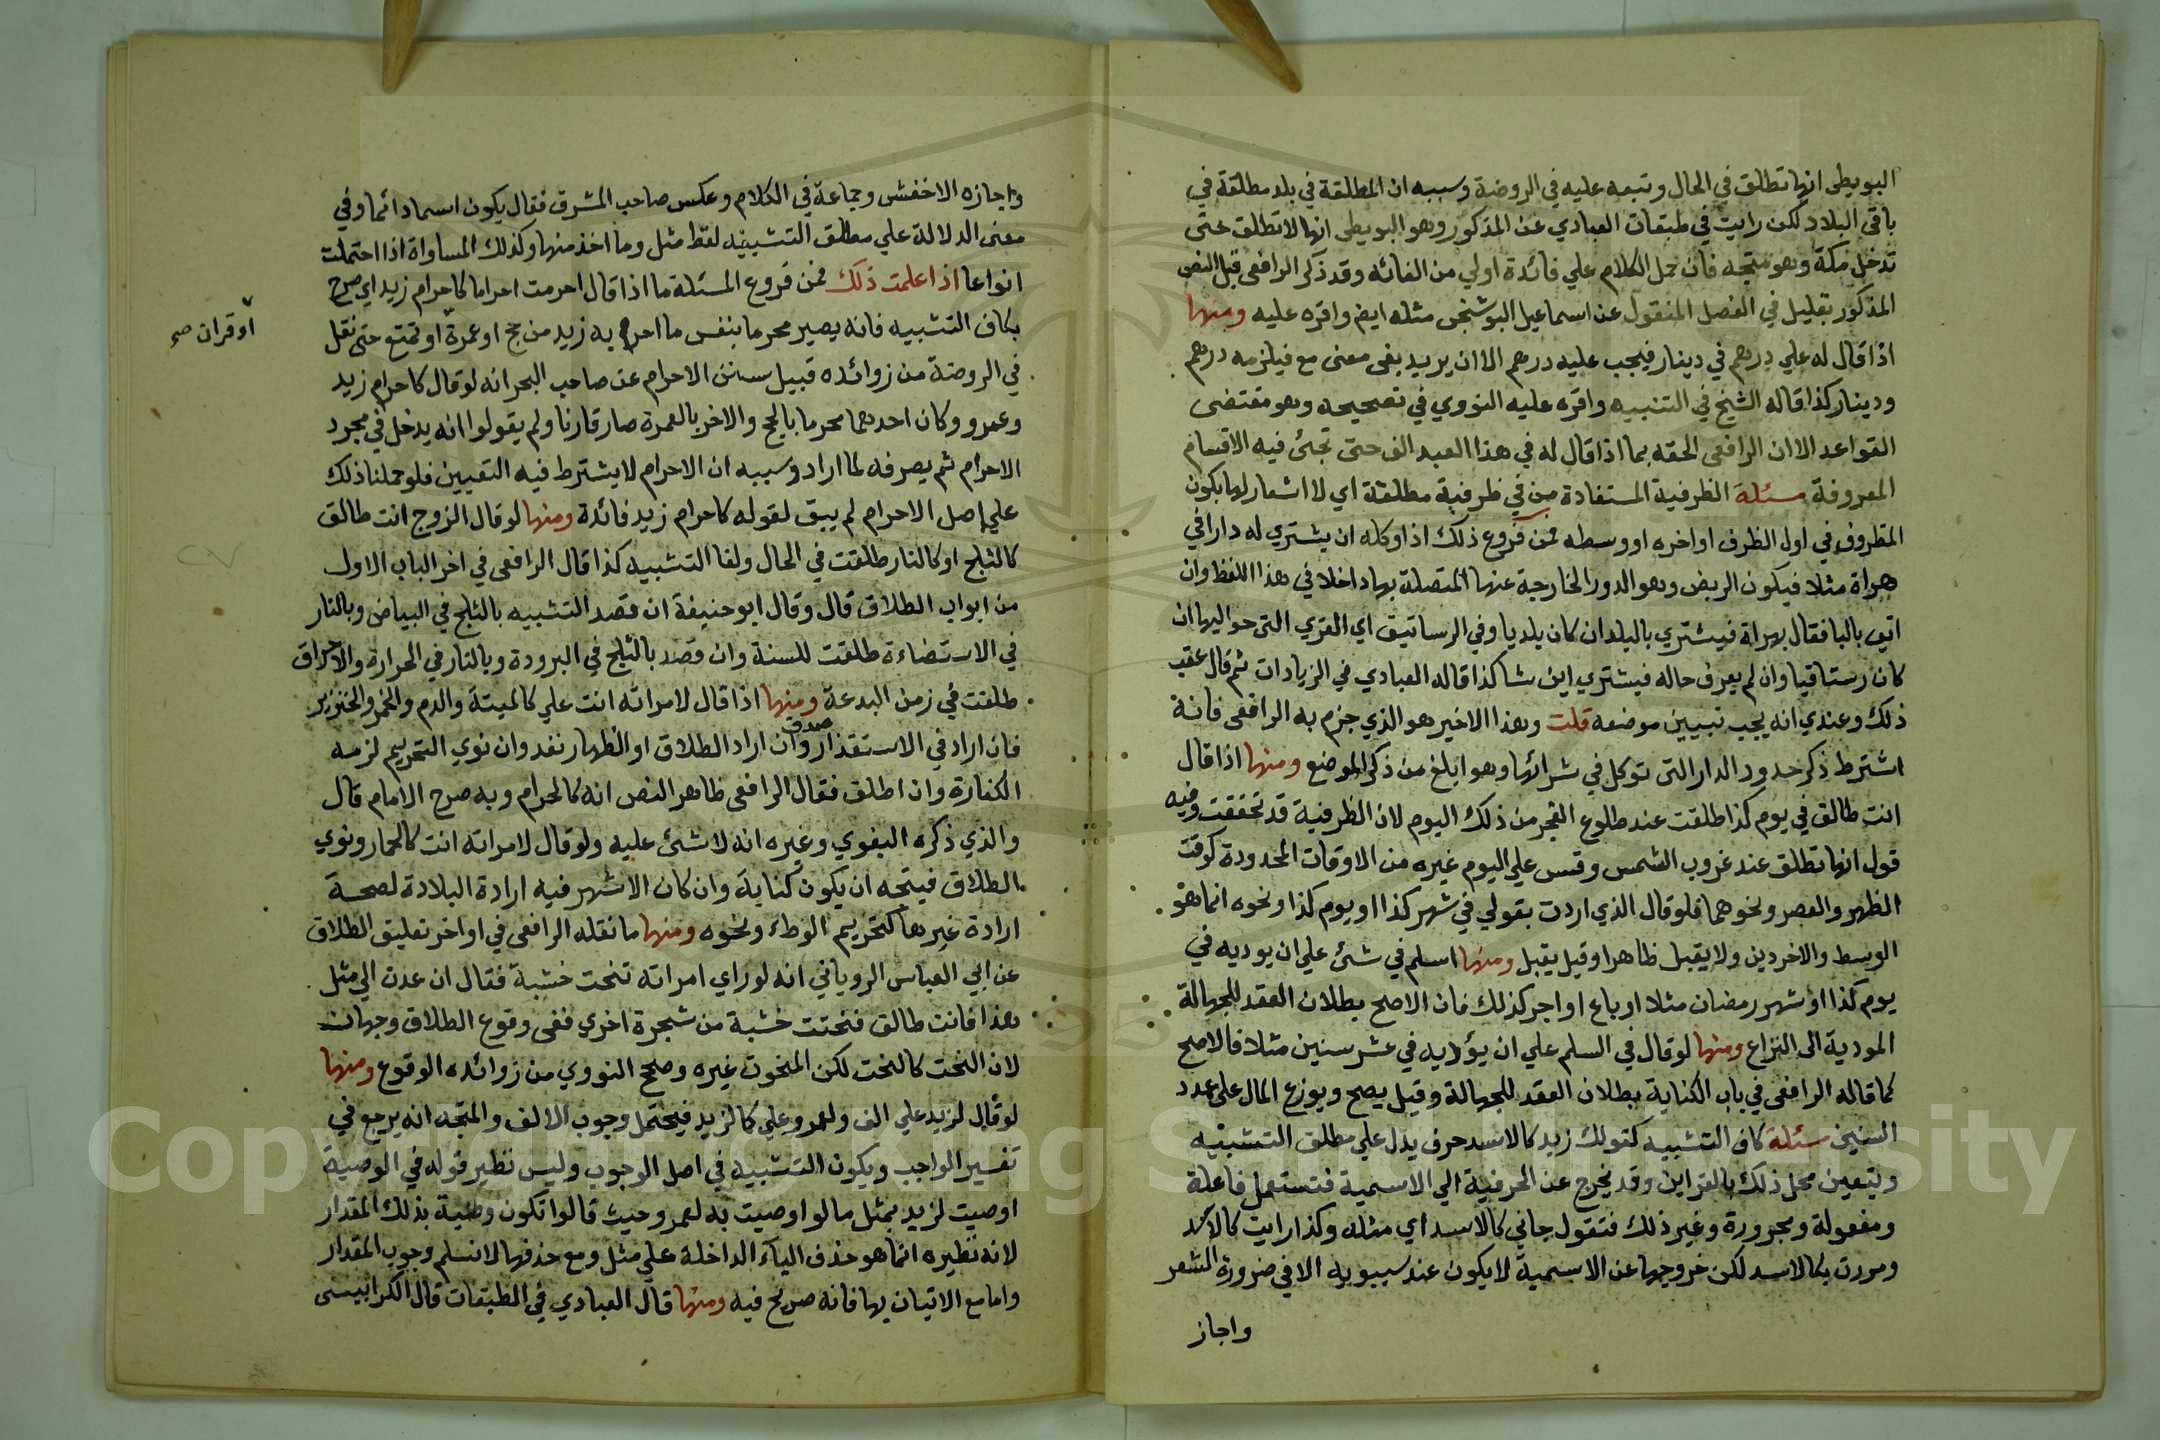 البويطى انها تطلق في الحال وتبعه عليه في الروضة وسببه ان المطلقة في بلد مطلقة في
باقى البلاد لكن رايت في طبقات العبادي عن المذكور وهو البويطى انها لا تطلق حتى
تدخل مكة وهو متجه فان حمل الكلام علي فائدة اولي من الغائه وقد ذكر الرافعى قبل النص
المذكور بقليل في الفصل المنقول عن اسماعيل البوشنجى مثله ايض واقره عليه ومنها
اذا قال له علي درهم في دينار فيجب عليه درهم الا ان يريد بفى معنى مع فيلزمه درهم
ودينار كذا قاله الشيخ في التنبيه واقره عليه النووي في تصحيحه وهو مقتضى
القواعد الا ان الرافعى الحقه بما اذا قال له في هذا العبد الف حتى تجئ فيه الاقسام
المعروفة مسئلة الظرفية المستفادة من في ظرفية مطلقة اي لا اشعار لها بكون
المظروف في اول الظرف او اخره او وسطه فمن فروع ذلك اذا وكله ان يشتري له دارا في
هراة مثلا فيكون الربض وهو الدور الخارجة عنها المتصلة بها داخلا في هذا اللفظ وان
اتي بالبا فقال بهراة فيشتري بالبلد ان كان بلديا وفي الرساتيق اي القري التى حواليها ان
كان رستاقيا وان لم يعرف حاله فيشتري اين شا كذا قاله العبادي في الزيادات ثم قال عقب
ذلك وعندي انه يجب تبيين موضعه قلت وهذا الاخير هو الذي جزم به الرافعى فانه
اشترط ذكر حدود الدار التى توكل في شرائها وهو ابلغ من ذكر الموضع ومنها اذا قال
انت طالق في يوم كذا طلقت عند طلوع الفجر من ذلك اليوم لان الظرفية قد تحققت وفيه
قول انها تطلق عند غروب الشمس وقس علي اليوم غيره من الاوقات المحدودة كوقت
الظهر والعصر ونحوهما فلو قال الذي اردت بقولي في شهر كذا او يوم كذا ونحوه انما هو
الوسط والاخر دين ولا يقبل ظاهرا وقيل يقبل ومنها اسلم في شئ علي ان يوديه في
يوم كذا او شهر رمضان مثلا او باع او اجر كذلك فان الاصح بطلان العقد للجهالة
المودية الى النزاع ومنها لو قال في السلم علي ان يؤديه في عشر سنين مثلا فالاصح
كما قاله الرافعى في باب الكتابة بطلان العقد للجهالة وقيل يصح ويوزع المال على عدد
السنين مسئلة كاف التشبيه كقولك زيد كالاسد حرف يدل علي مطلق التشبيه
ويتعين محل ذلك بالقراين وقد يخرج عن الحرفية الي الاسمية فتستعمل فاعلة
ومفعولة ومجرورة وغير ذلك فتقول جاني كالاسد اي مثله وكذا رايت كالاسد
ومررت بكالاسد لكن خروجها عن الاسمية لا يكون عند سيبويه الا في ضرورة الشعر
واجاز
واجازه الاخفش وجماعة في الكلام وعكس صاحب المشرق فقال يكون اسما دائما وفي
معنى الدلالة علي مطلق التشبيه لفظ مثل وما اخذ منها وكذلك المساواة اذا احتملت
انواعا اذا علمت ذلك فمن فروع المسئلة ما اذا قال احرمت احراما كاحرام زيد اي صرح
بكاف التشبيه فانه يصير محرما بنفس ما احرم به زيد من حج او عمرة او تمتع حتى نقل
او قران صح
في الروضة من زوائده قبيل سنن الاحرام عن صاحب البحر انه لو قال كاحرام زيد
وعمرو وكان احدهما محرما بالحج والاخر بالعمرة صار قارنا ولم يقولوا انه يدخل في مجرد
الاحرام ثم يصرفه لما اراد وسببه ان الاحرام لا يشترط فيه التعيين فلو حملنا ذلك
علي اصل الاحرام لم يبق لقوله كاحرام زيد فائدة ومنها لو قال الزوج انت طالق
كالثلج او كالنار طلقت في الحال ولغا التشبيه كذا قال الرافعى في اخر الباب الاول
من ابواب الطلاق قال وقال ابو حنيفة ان قصد التشبيه بالثلج في البياض وبالنار
في الاستضاءة طلقت للسنة وان قصد بالثلج في البرودة وبالنار في الحرارة والاحراق
طلقت في زمن البدعة ومنها اذا قال لامراته انت علي كالميتة والدم والخمر والخنزير
فان اراد في الاستقذار صدق وان اراد الطلاق او الظهار نفد وان نوي التحريم لزمه
الكفارة وان اطلق فقال الرافعى ظاهر النص انه كالحرام وبه صرح الامام قال
والذي ذكره البغوي وغيره انه لا شئ عليه ولو قال لامراته انت كالحمار ونوي
الطلاق فيتجه ان يكون كناية وان كان الاشهر فيه ارادة البلادة لصحة
ارادة غيرها كتحريم الوطء ونحوه ومنها ما نقله الرافعى في اواخر تعليق الطلاق
عن ابي العباس الروياني انه لو راي امراته تنحت خشبة فقال ان عدت الي مثل
هذا فانت طالق فنحتت خشبة من شجرة اخري ففى وقوع الطلاق وجهان
لان النحت كالنحت لكن المنحوت غيره وصحح النووي من زوائده الوقوع ومنها
لو قال لزيد علي الف ولعمرو علي كما لزيد فيحتمل وجوب الالف والمتجه انه يرجع في
تفسير الواجب ويكون التشبيه في اصل الوجوب وليس نظير قوله في الوصية
اوصيت لزيد بمثل ما لو اوصيت به لعمرو حيث قالوا تكون وصية بذلك المقدار
لانه نظيره انما هو حذف الباء الداخلة علي مثل ومع حذفها لا نسلم وجوب المقدار
واما مع الاتيان بها فانه صريح فيه ومنها قال العبادي في الطبقات قال الكرابيسى